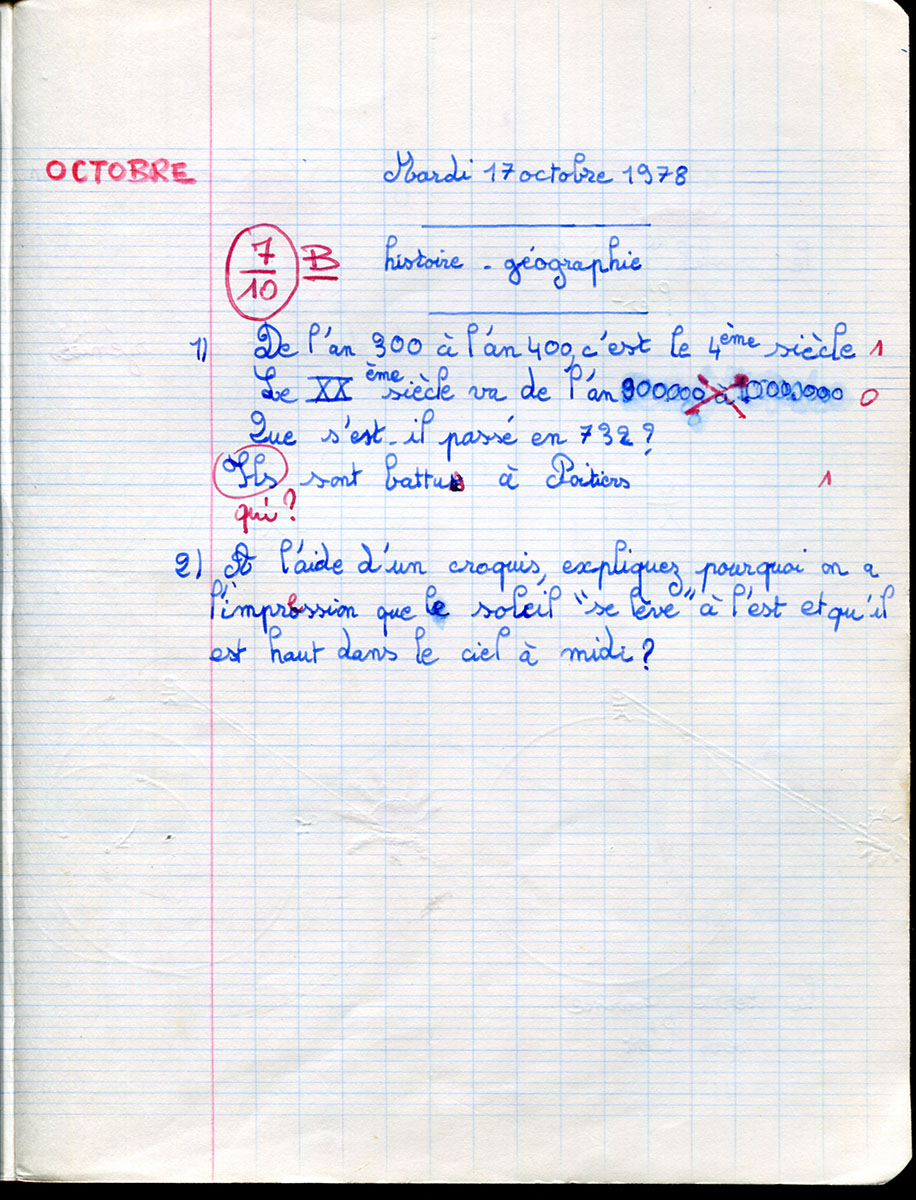 OCTOBRE
Mardi 17 octobre 1978
7/10 B
histoire - géographie
1) De l'an 300 à l'an 400, c'est le 4ème siècle 1
Le XXème siècle va de l'an 900000 à 10000000 0
Que s'est-il passé en 732?
Ils sont battus à Poitiers 1
qui?
2) A l'aide d'un croquis, expliquez pourquoi on a
l'impression que le soleil "se lève" à l'est et qu'il
est haut dans le ciel à midi?